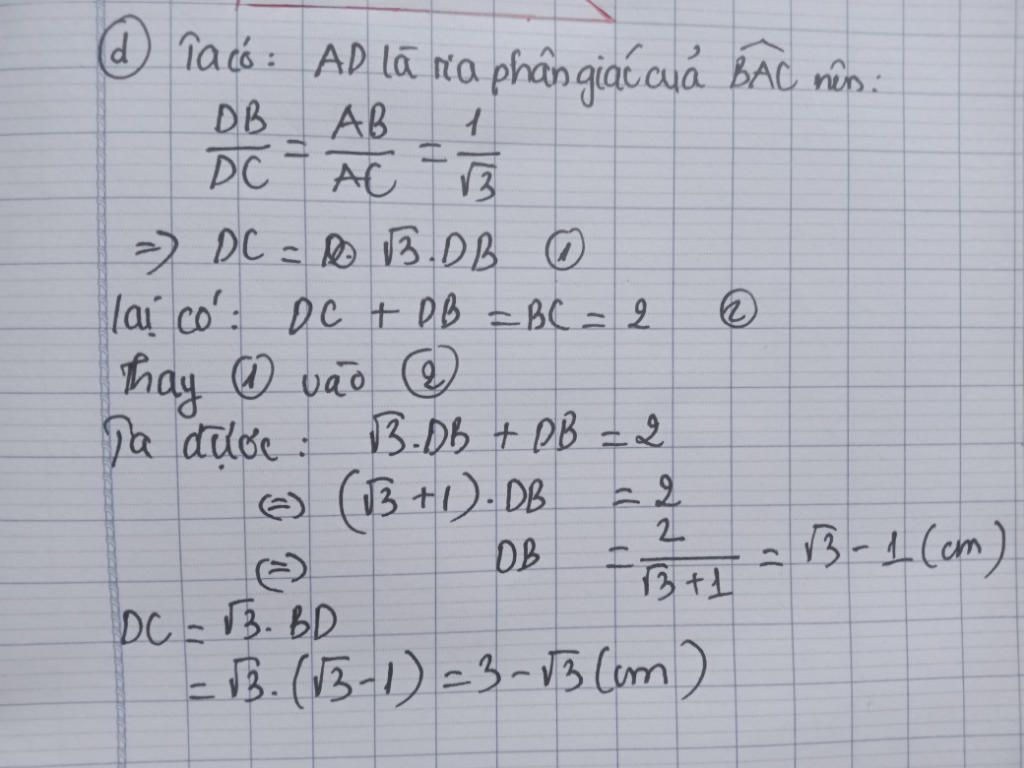 ⓓ Ta có: AD là tia phân giác của \widehat{BAC} nên:
\frac{DB}{DC} = \frac{AB}{AC} = \frac{1}{\sqrt{3}}
=> DC = √3.DB ①
lại có: DC + DB = BC = 2 ②
Thay ① vào ②
Ta được: √3.DB + DB = 2
(=) (√3+1).DB = 2
(=) DB = \frac{2}{\sqrt{3}+1} = √3 - 1 (cm)
DC = √3.BD
= √3.(√3-1) = 3-√3 (cm)